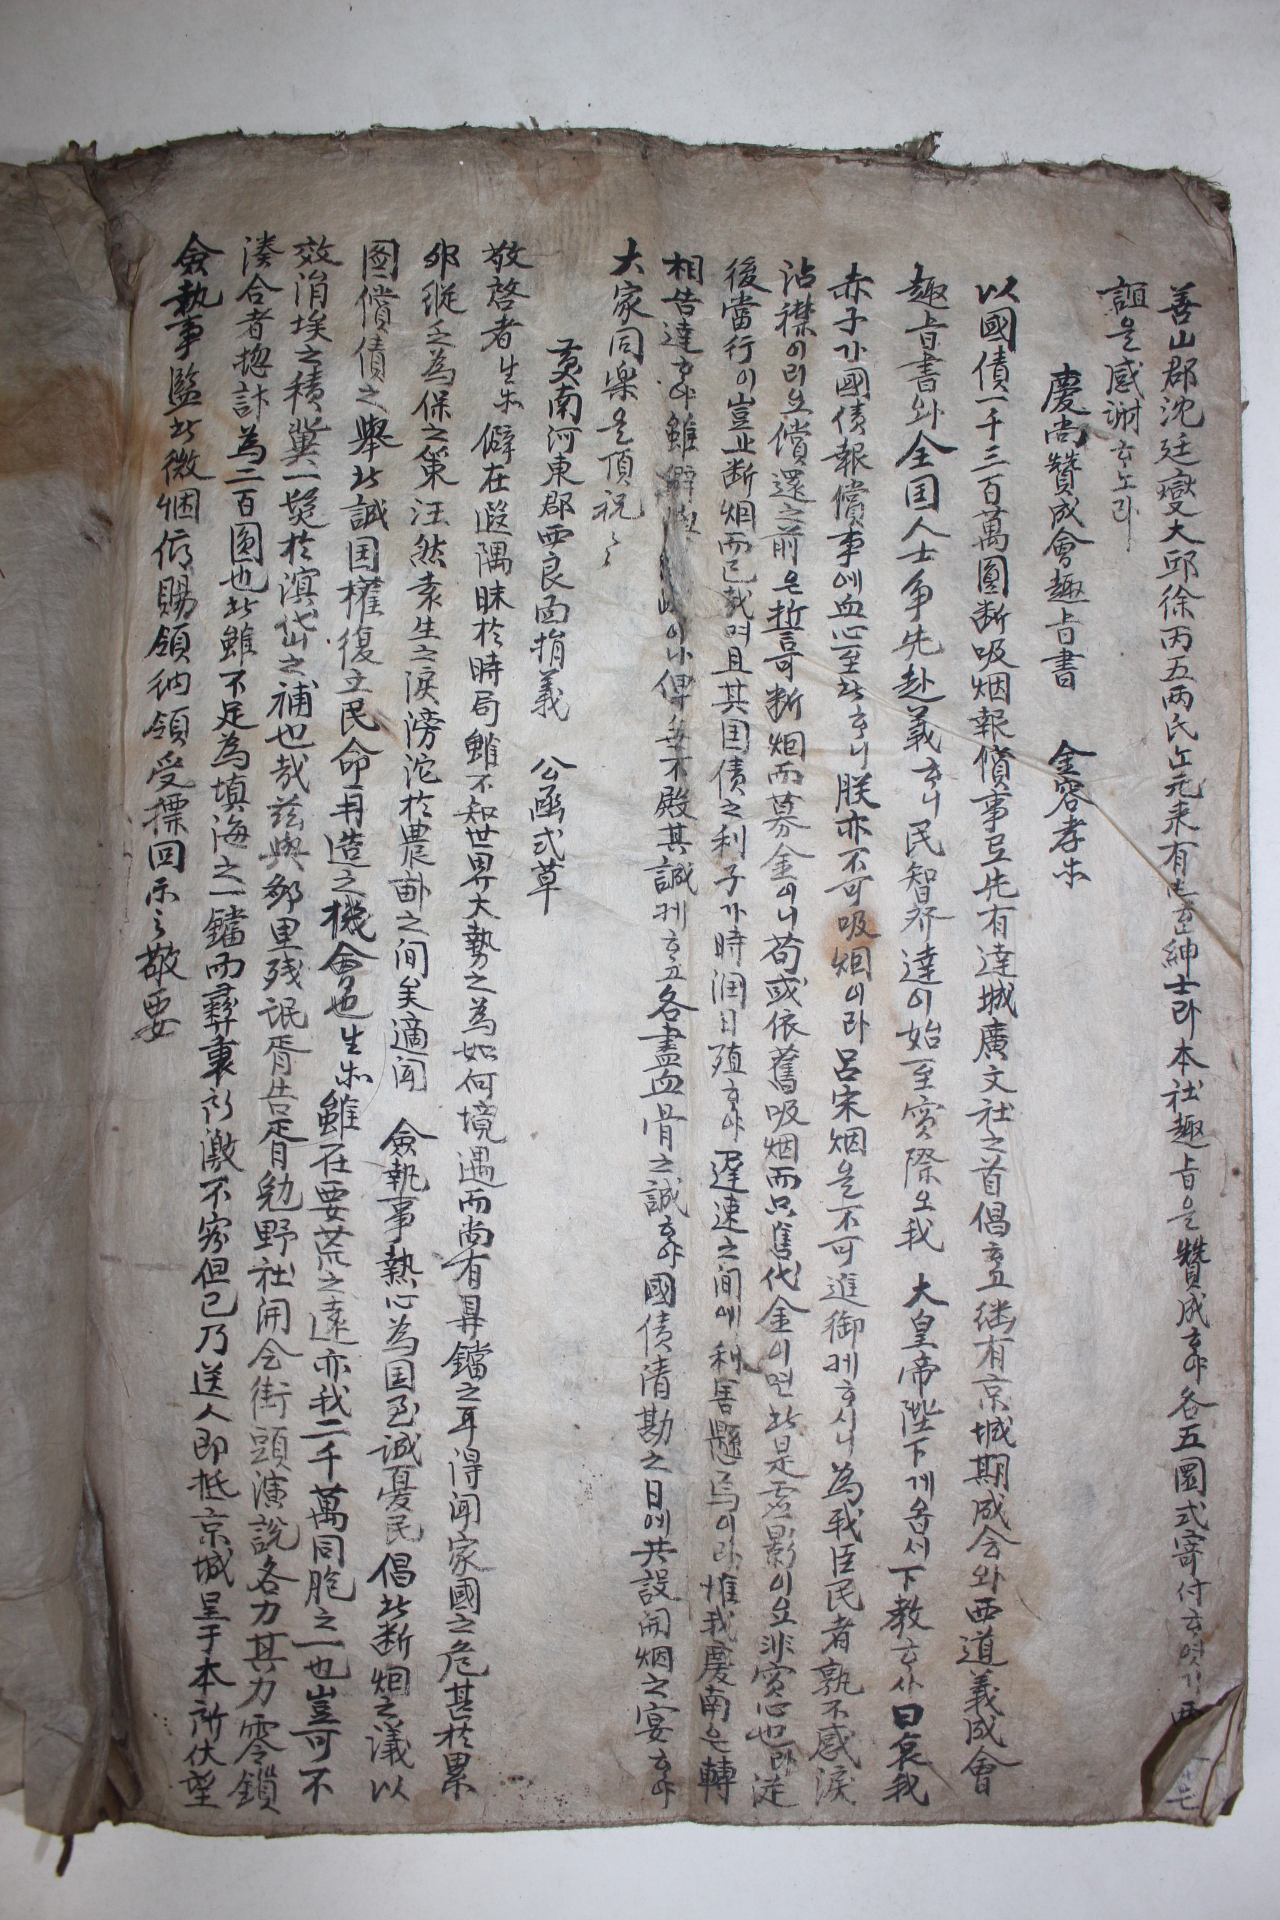 善山郡沈廷嶽大邱徐丙五兩氏는元來有志紳士라本社趣旨을贊成하야各五圜式寄付하엿기
誼을感謝하노라
慶尙贊成會趣旨書 金容孝等
以國債一千三百萬圓斷吸烟報償事로先有達城廣文社之首倡하고繼有京城期成会와西道義成會
趣旨書와全国人士争先赴義하니民智發達이始至實際오我 大皇帝陛下게옵서下敎하사曰哀我
赤子가國債報償事에血心至此하니朕亦不可吸烟이라呂宋烟을不可進御케하시니為我臣民者孰不感淚
沾襟이리오償還之前은誓可斷烟而募金이니苟或依舊吸烟而只售代金이면此是虛影이오非實心也即從
後當行이豈止斷烟而已哉며且其国債之利子가時润日殖하야遲速之間에利害懸焉이라惟我慶南은轉
相告達하야雖僻 이니俾無不殿其誠케하고各盡血骨之誠하야國債清勘之日에共設開烟之宴하야
大家同樂을頂祝〻
黃南河東郡西良面捐義 公函式草
敬啓者生等僻在遐隅昧於時局雖不知世界大勢之為如何境遇而尚有鼻鐺之耳得聞家國之危甚於累
卵縱乏為保之策汪然袁生之淚滂沱於農畝之间矣適闻 僉執事熱心為国至誠憂民倡此斷烟之議以
圖償債之舉此誠国權復立民命再造之機會也生等雖在要荒之遠亦我二千萬同胞之一也豈可不
效涓埃之積冀一髮於溟岱之補也哉玆與鄉里残氓胥告胥勉野社開会街頭演說各力其力零鎖
湊合者摠計為二百圓也此雖不足為填海之一鐺而彝衷所激不容但已乃送人即抵京城呈于本所伏望
僉執事監此微悃俯賜領納領受票回示之敬要